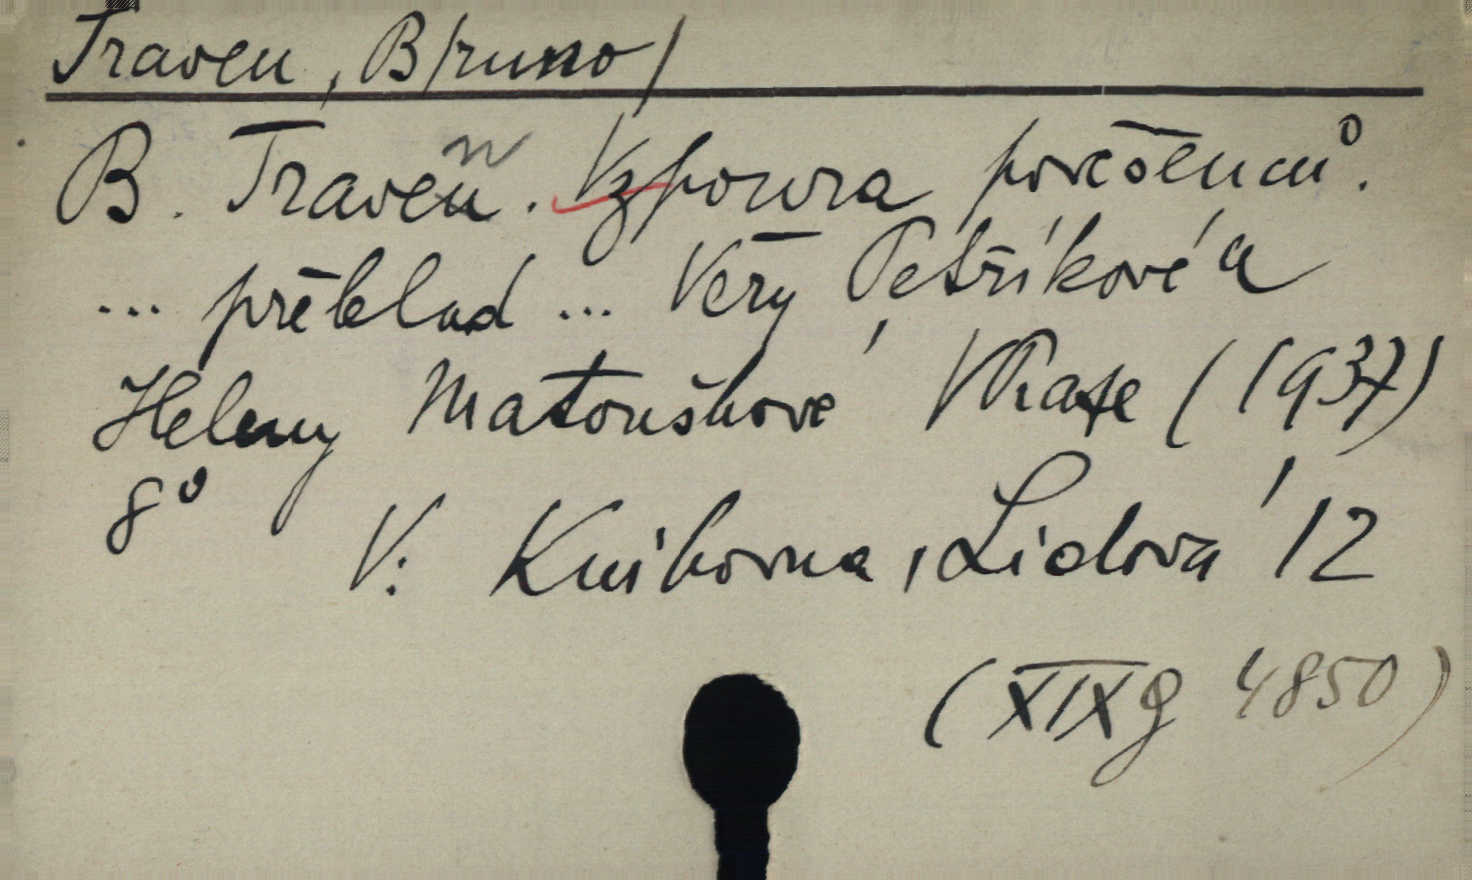 Traven, B/runo/
B. Traven. Vzpoura pověšenců.
... překlad ... Věry Petříkové a
Heleny Matouškové V Praze (1937)
8°
V: Knihovna, Lidová 12
(XIX g 4850)